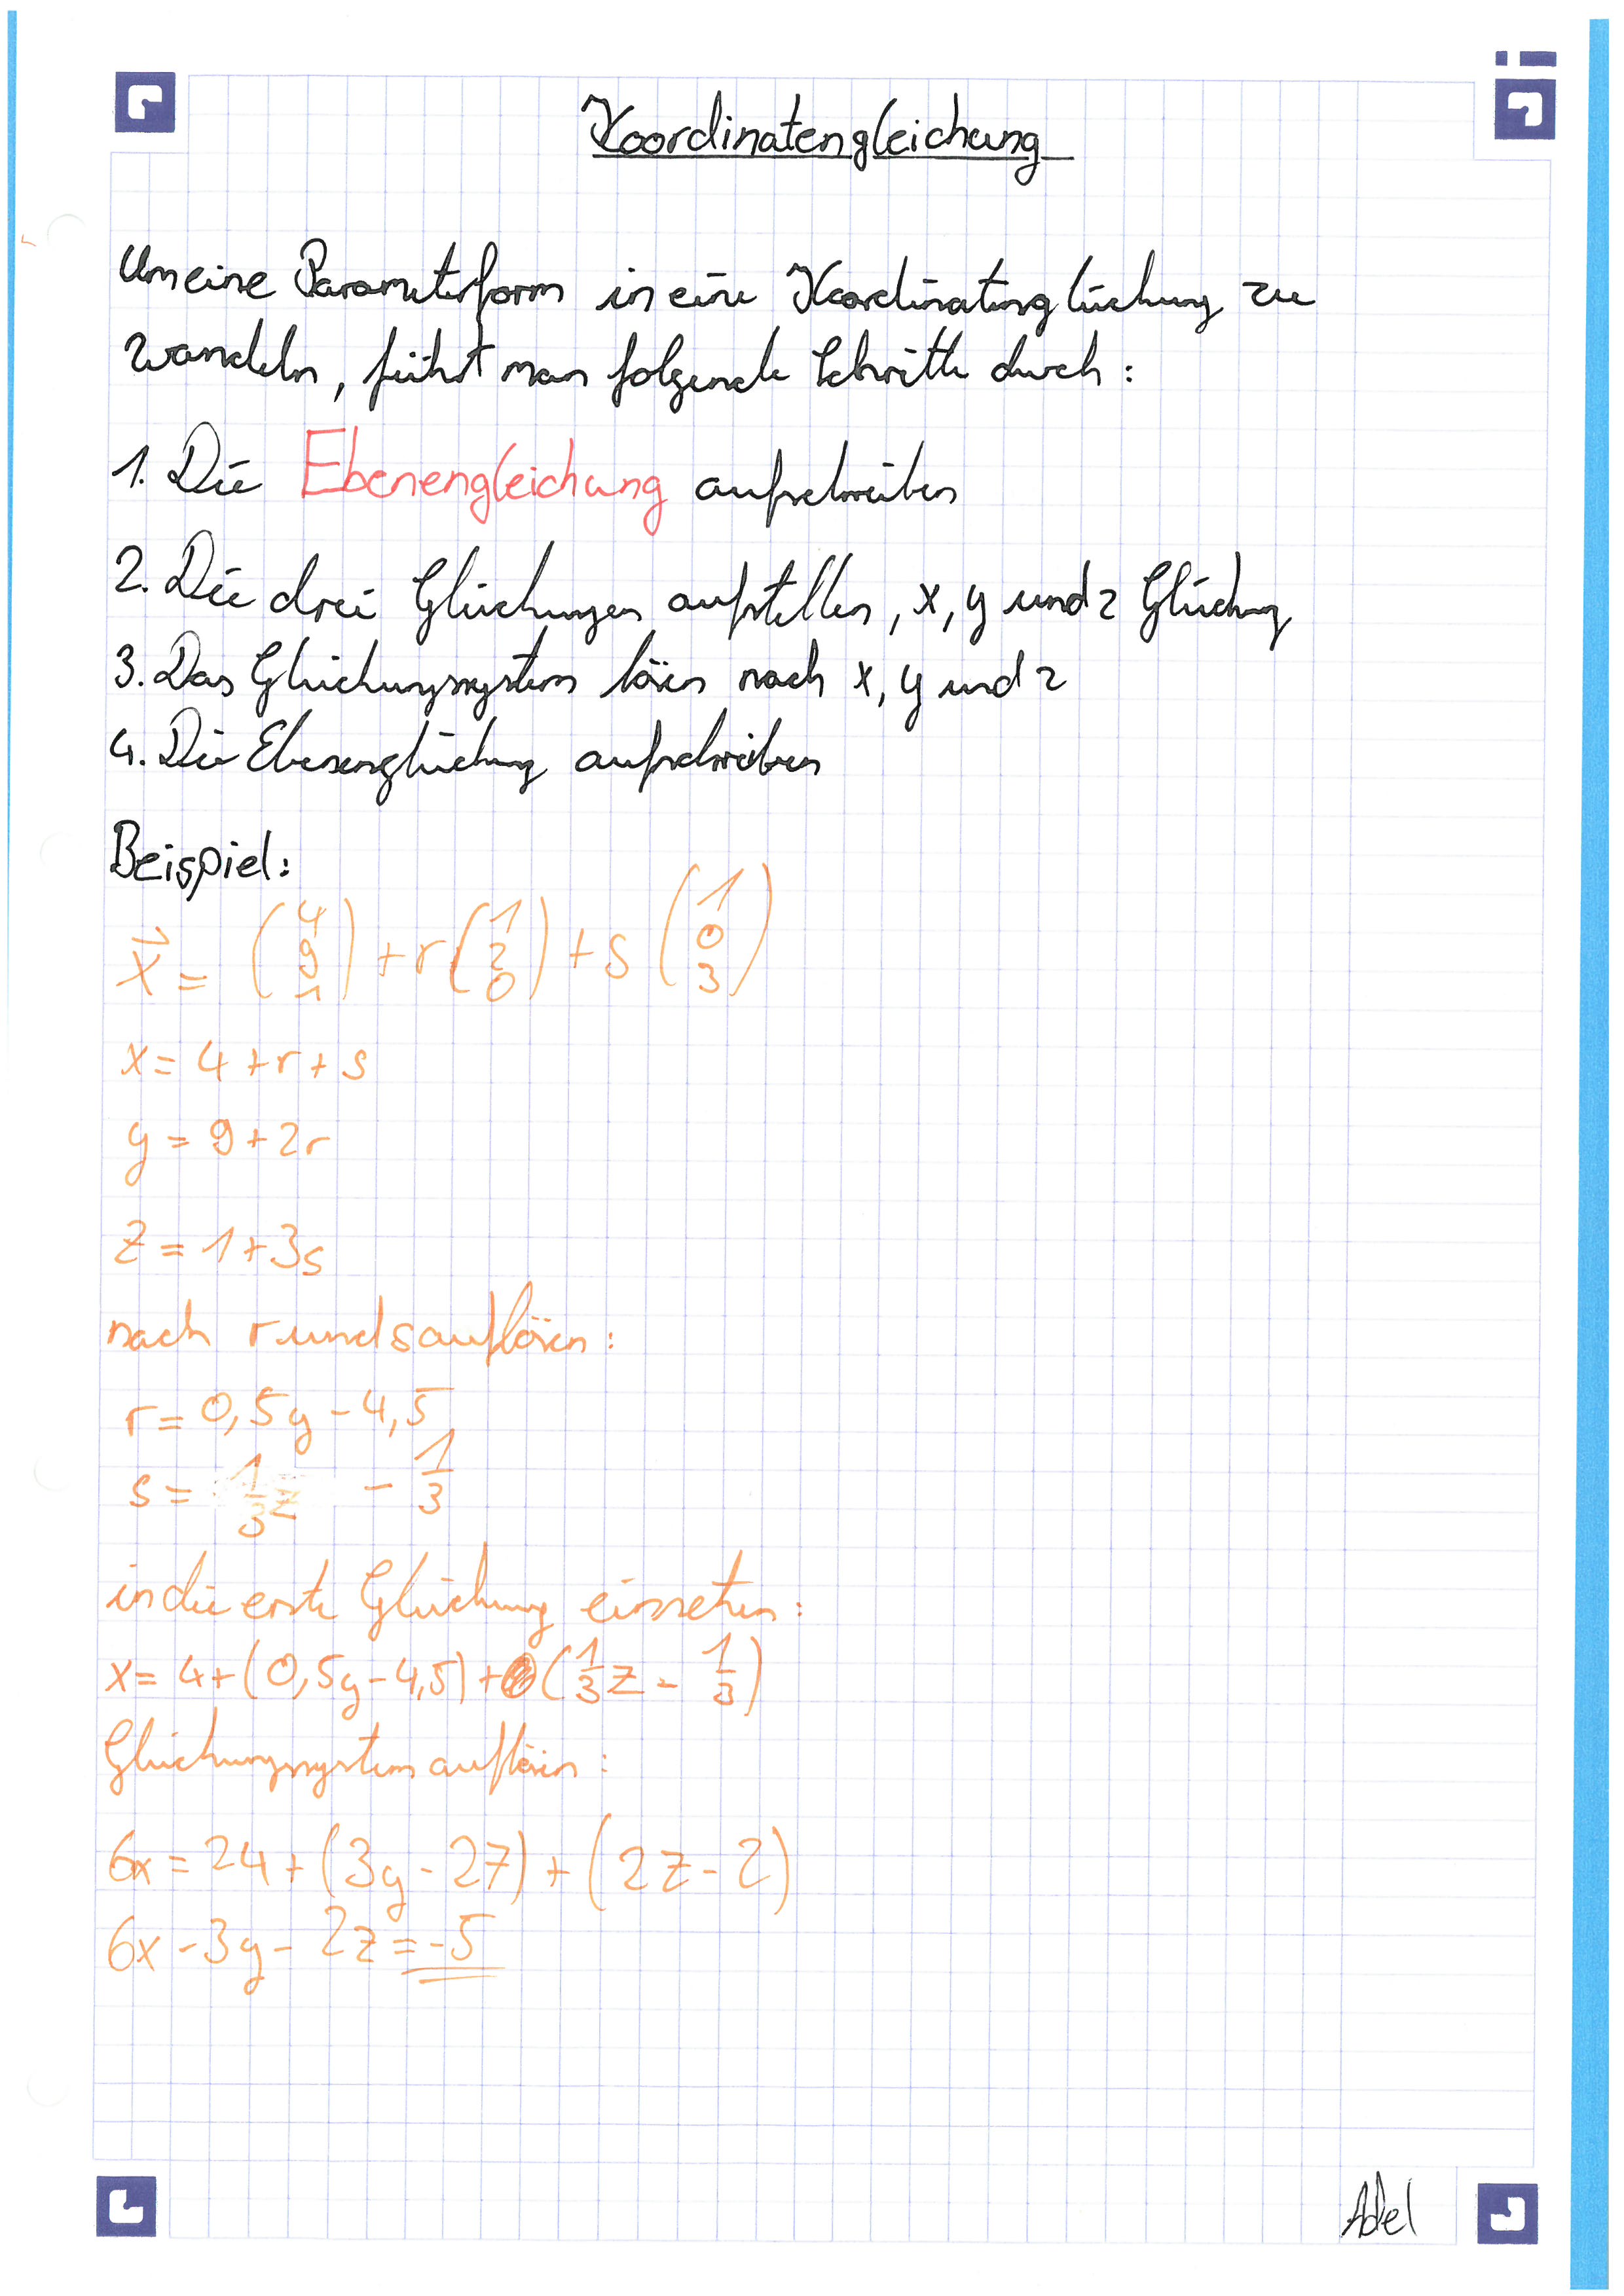 Koordinatengleichung
Um eine Parameterform in eine Koordinatengleichung zu
wandeln, führt man folgende Schritte durch:
1. Die Ebenengleichung aufschreiben
2. Die drei Gleichungen aufstellen, x, y und z Gleichung
3. Das Gleichungssystem lösen nach x, y und z
4. Die Ebenengleichung aufschreiben
Beispiel:
x⃗ = (4 9 1) + r (1 2 0) + s (1 0 3)
x = 4 + r + s
y = 9 + 2r
z = 1 + 3s
nach r und s auflösen:
r = 0,5y - 4,5
s = 1/3 z - 1/3
in die erste Gleichung einsetzen:
x = 4 + (0,5y - 4,5) + (1/3 z - 1/3)
Gleichungssystem auflösen:
6x = 24 + (3y - 27) + (2z - 2)
6x - 3y - 2z = -5
Adel